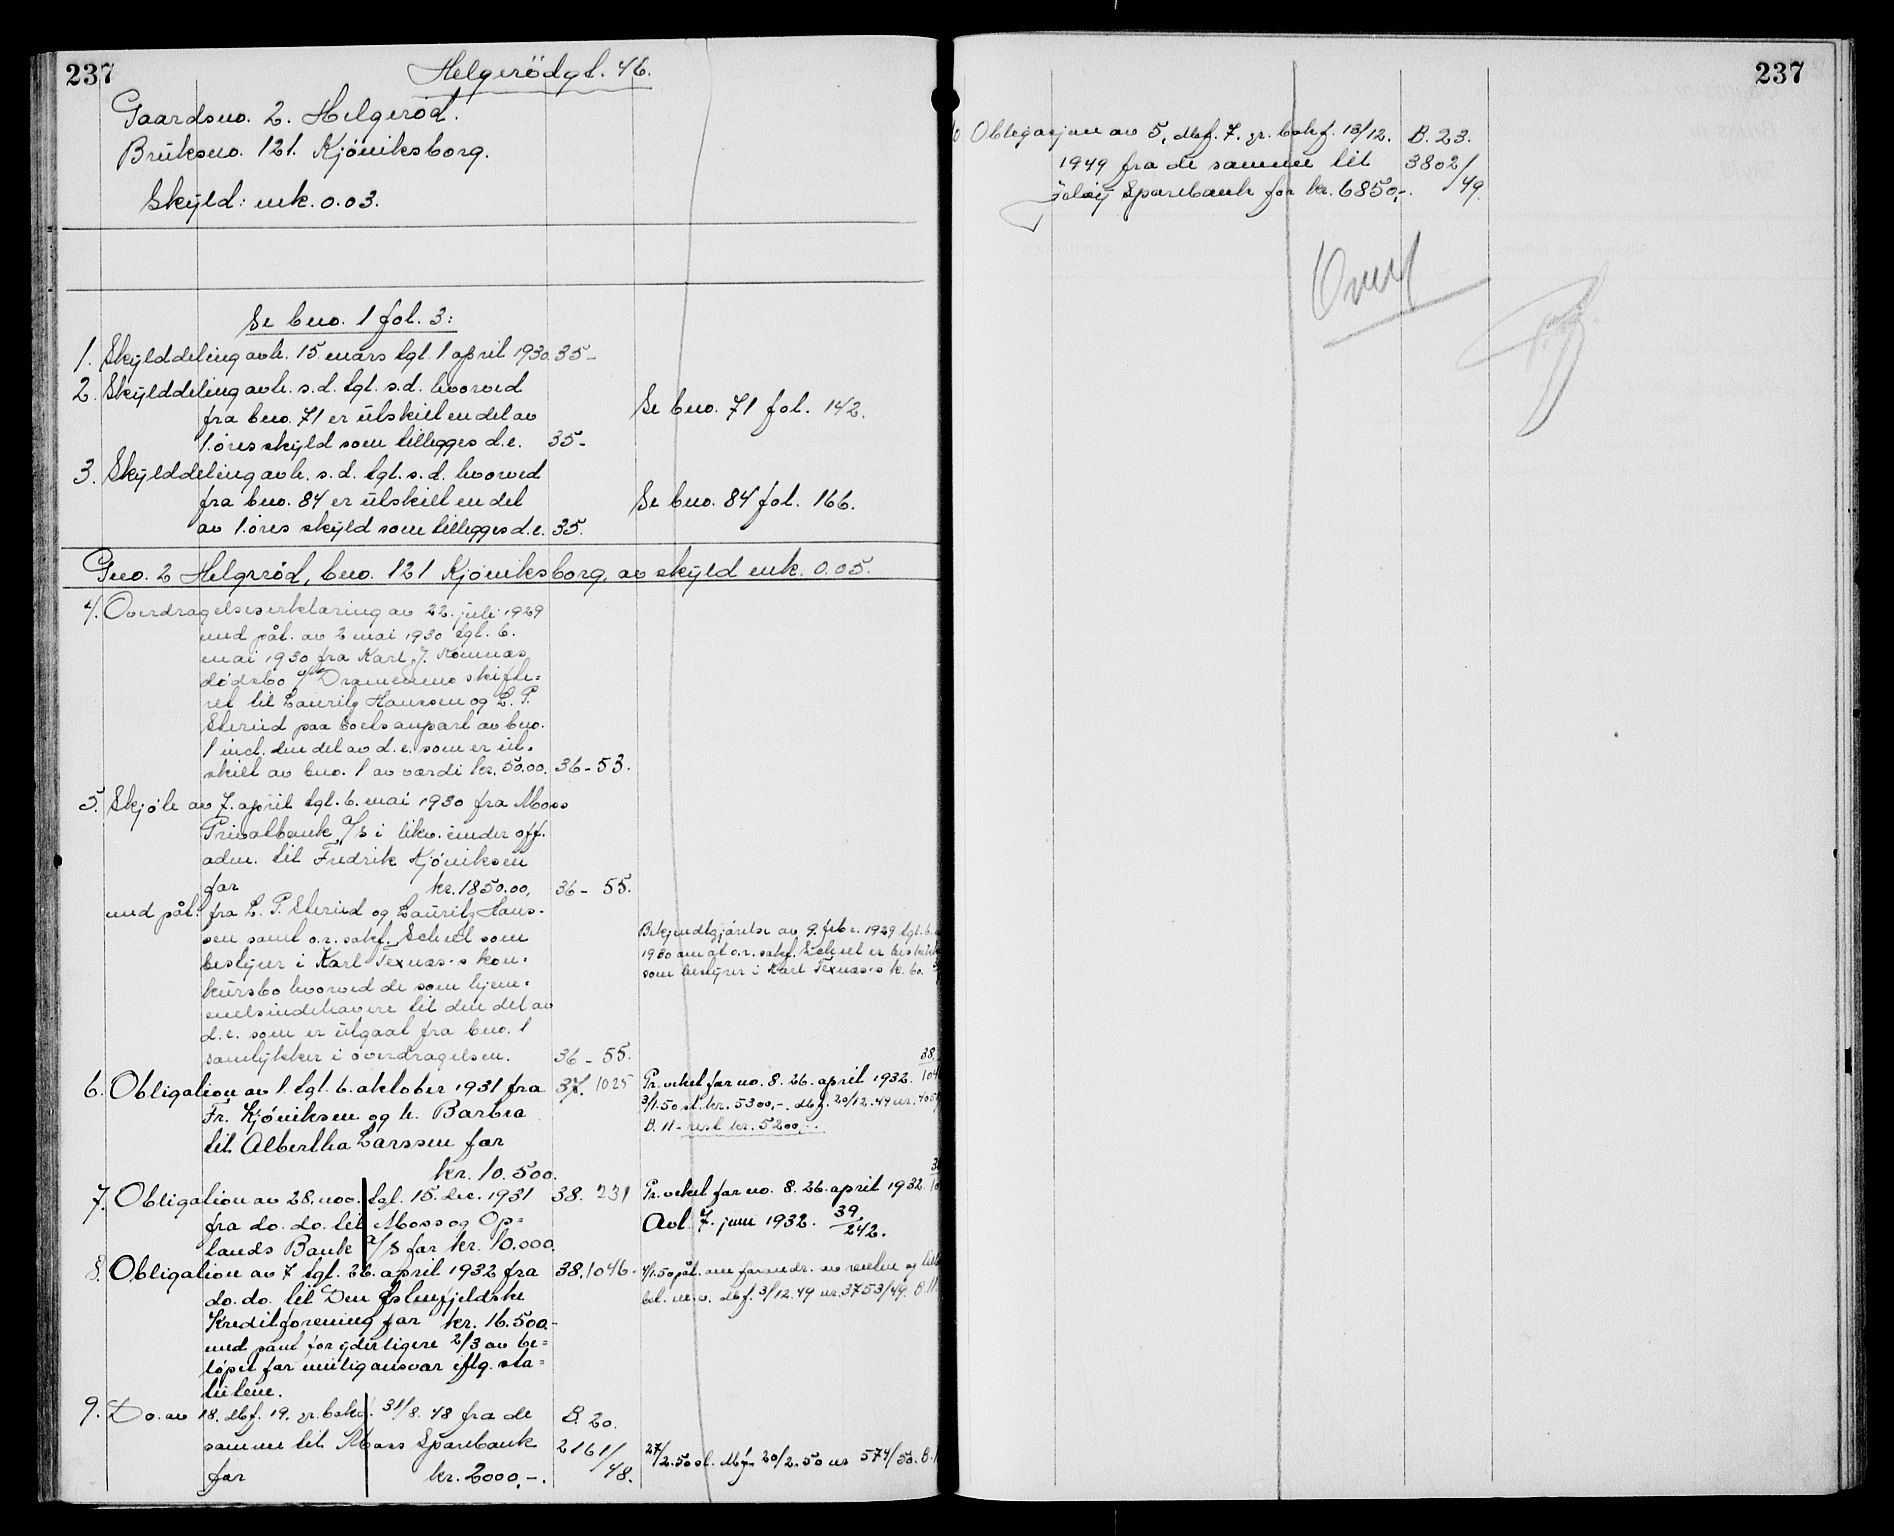 237
Helgerödgt. 46.
Gaardsno. 2. Helgerød.
Bruksno. 121. Kjöniksborg.
Skyld: mk. 0.03.
Se bno. 1 fol. 3:
1. Skylddeling avh. 15 mars tgl. 1 april 1930. 35-
2. Skylddeling avh. s.d. tgl. s.d. hvorved
fra bno. 71 er utskilt en del av Se bno. 71 fol. 142.
1. øres skyld som tillegges d.e. 35-
3. Skylddeling avh. s.d. tgl. s.d. hvorved
fra bno. 84 er utskilt en del Se bno. 84 fol. 166.
av 1.øres skyld som tillegges d.e. 35.
Gno. 2 Helgerød, bno. 121 Kjøniksborg, av skyld mk. 0.05.
4. Overdragelseserklæring av 22. juli 1929
med påt. av 2 mai 1930 tgl. 6.
mai 1930 fra Karl J.
dødsbo Drammens skifte=
ret til Lauritz Hanssen og L. P.
Sterud paa boets anpart av bno.
1 incl. den del av d.e. som er ut-
skilt av bno. 1 av værdi kr. 50.00. 36-53.
5. Skjøte av 7. april tgl. 6. mai 1930 fra Moss
Privatbank A/S i likv. under off.
adm. til Fredrik Kjøniksen
for kr. 1850.00, 36- 55.
med påt. fra L. P. Sterud og Lauritz Hans-
sen samt o.r. sakf. Scheel som
bestyrer i Karl Texnæs.s kon-
kursbo hvorved de som hjem-
melsindehavere til den del av
d.e. som er utgaat fra bno. 1
samtykker i overdragelsen. 36 - 55.
Bekjendtgjørelse av 9. febr. 1929 tgl. 6.
1930 om at o.r. sakf. Scheel er beskikket
som bestyrer i Karl Texnæs.s k. bo.
6. Obligation av 1 tgl. 6. oktober 1931 fra 37. 1025
Fr. Kjøniksen og h. Barbra
til Albertha Larssen for
kr. 10.500.
38.
Pr. veket for no. 8. 26. april 1932. 104
3/1.50 sl. kr. 5300,-. dbf. 20/12.49 nr.
B. 11 - rest kr. 5200,-.
7. Obligation av 28. nov. tgl. 15. dec. 1931 38. 231
fra do. do. til Moss og Op=
lands Bank A/S for kr. 10.000.
Pr. veket for no. 8. 26. april 1932.
Avl. 7. juni 1932. 39/242.
8. Obligation av 7 tgl. 26. april 1932 fra 38. 1046.
do. do. til Den Østenfjeldske
Kreditforening for kr. 16.500.-
med pant for yderligere 2/3 av be=
løpet for mulig ansvar iflg. sta=
tutene.
4/1.50 påt. om forandr. av renten og
bet. m.v. dbf. 3/12.49 nr. 3753/49. B. 11.
9. Do. av 18. dbf. 19. gr. bokf. 31/8. 48 fra de B. 20.
samme til Moss Sparebank 2161/
for kr. 2000,-. 48.
27/2.50 sl. dbf. 20/2.50 nr 574/50. B.
237
Obligasjon av 5, dbf. 7. gr. bokf. 13/12. B. 23.
1949 fra de samme til 3802/
Jeløy Sparebank for kr. 6850,-. 49.
Overf